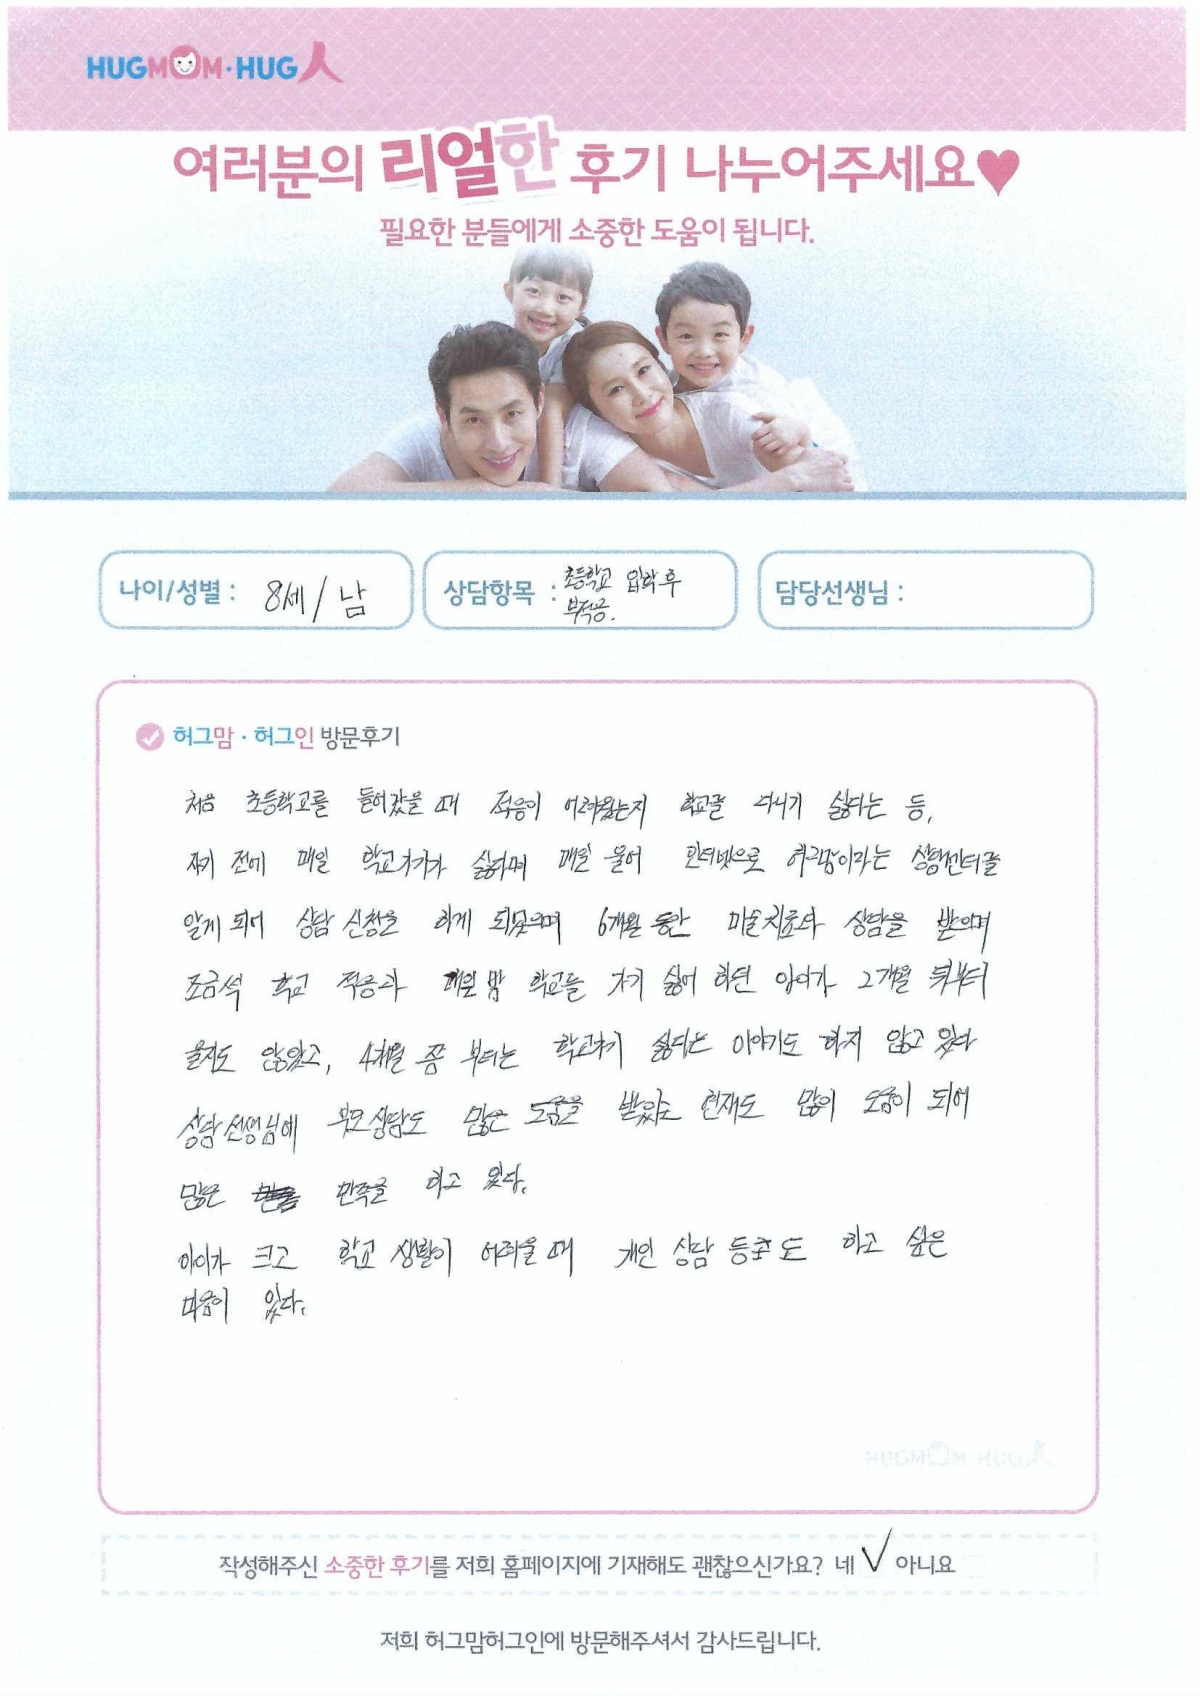 HUGMOM·HUG人
여러분의 리얼한 후기 나누어주세요♥
필요한 분들에게 소중한 도움이 됩니다.
나이/성별 : 8세/남
상담항목 : 초등학교 입학 후
부적응.
담당선생님 :
허그맘·허그인 방문후기
처음 초등학교를 들어갔을 때 적응이 어려웠는지 학교를 다니기 싫다는 등,
자기 전에 매일 학교가기가 싫다며 매일 울어 인터넷으로 허그맘이라는 상담센터를
알게 되어 상담 신청을 하게 되었으며 6개월 동안 미술치료와 상담을 받으며
조금씩 학교 적응과 매일 밤 학교를 가기 싫어 하던 아이가 2개월 뒤부터
울지도 않았고, 4개월 쯤 부터는 학교가기 싫다는 이야기도 하지 않고 있다
상담선생님에 부모상담도 많은 도움을 받았고 현재도 많이 도움이 되어
많은 만족을 하고 있다.
아이가 크고 학교 생활이 어려울 때 개인 상담 등으로도 하고 싶은
마음이 있다.
HUGMOM·HUG人
작성해주신 소중한 후기를 저희 홈페이지에 기재해도 괜찮으신가요? 네 ✓ 아니요
저희 허그맘허그인에 방문해주셔서 감사드립니다.